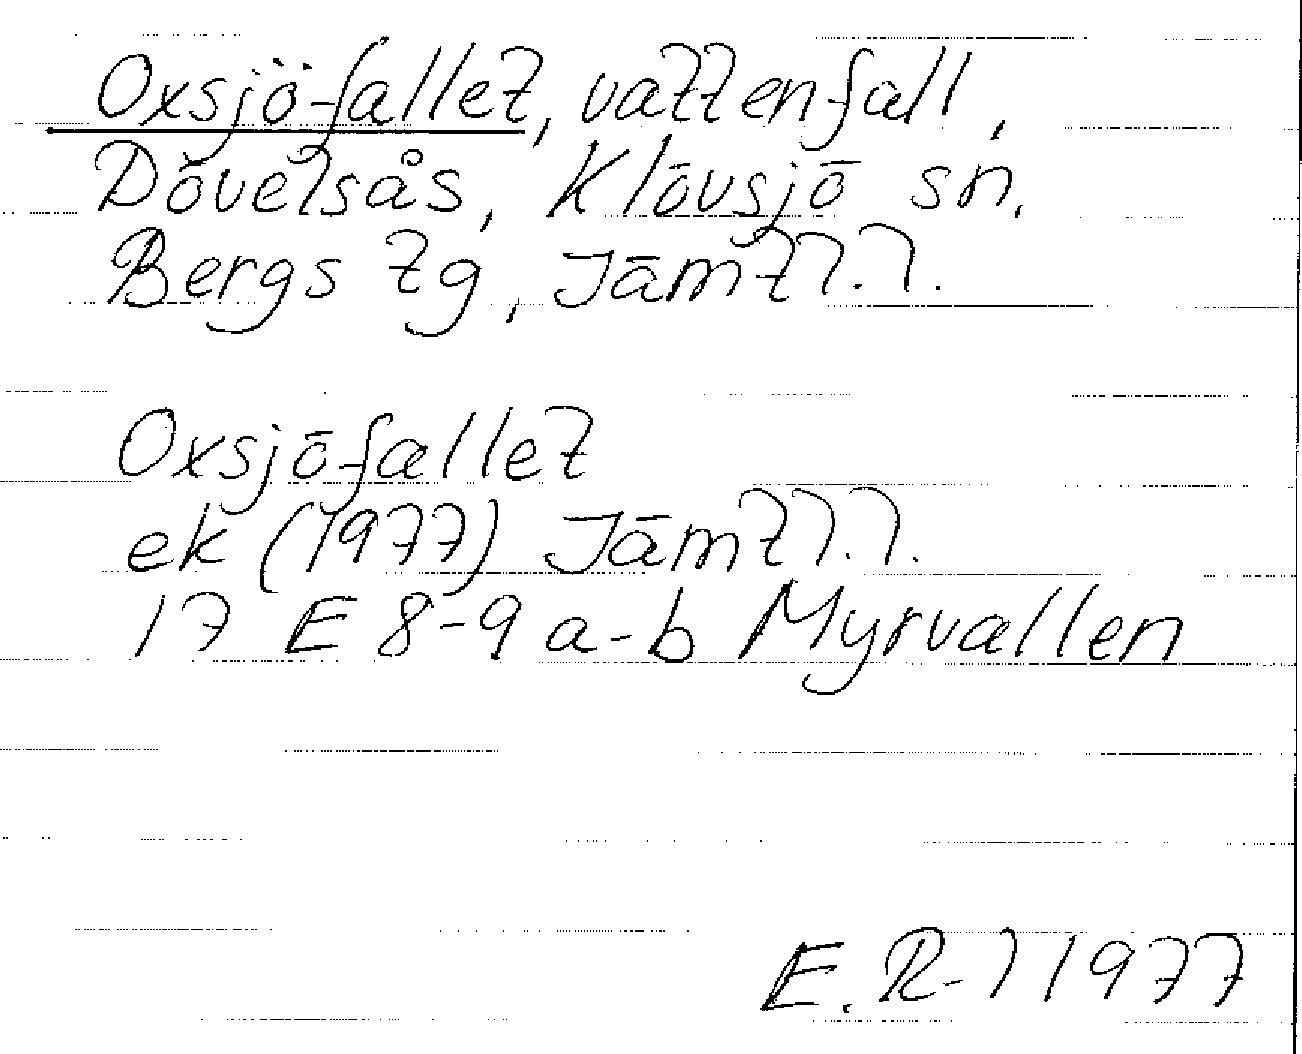 Oxsjöfallet, vattenfall,
Dövelsås, Klövsjö sn,
Bergs tg, Jämtl.l.
Oxsjöfallet
ek (1977) Jämtl.l.
17 E 8-9 a-b Myrvallen
E. R-l 1977